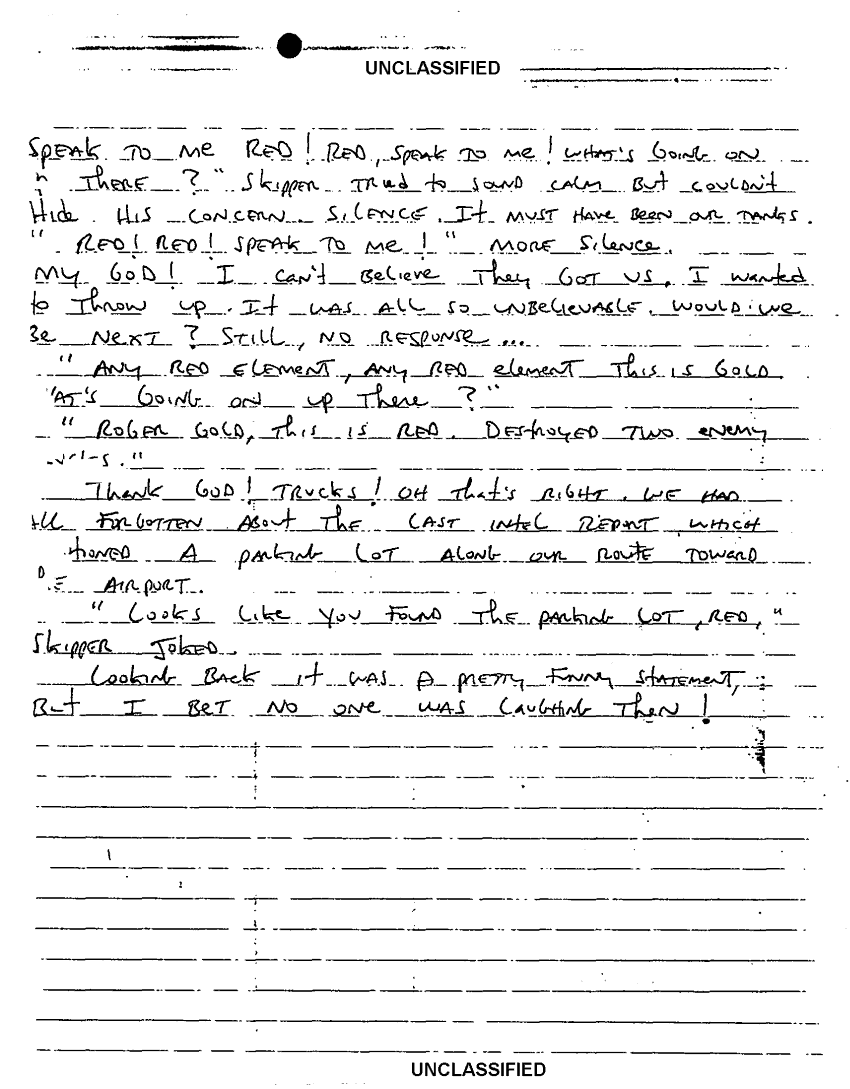 UNCLASSIFIED
SPEAK TO ME RED! RED, SPEAK TO ME! WHAT'S GOING ON
THERE?" SKIPPER TRIED TO SOUND CALM BUT COULDN'T
HIDE HIS CONCERN. SILENCE. IT MUST HAVE BEEN OUR TANKS.
"RED! RED! SPEAK TO ME!" MORE SILENCE.
MY GOD! I CAN'T BELIEVE THEY GOT US. I WANTED
to THROW UP. IT WAS ALL SO UNBELIEVABLE. WOULD WE
BE NEXT? STILL, NO RESPONSE...
"ANY RED ELEMENT, ANY RED element THIS IS GOLD.
'AT'S GOING ON UP THERE?"
"ROGER GOLD, THIS IS RED. DESTROYED TWO ENEMY
THANK GOD! TRUCKS! OH THAT'S RIGHT. WE HAD
ALL FORGOTTEN ABOUT THE LAST INTEL REPORT WHICH
TIONED A PARKING LOT ALONG OUR ROUTE TOWARD
AIRPORT.
"LOOKS LIKE YOU FOUND THE PARKING LOT, RED,"
SKIPPER JOKED.
LOOKING BACK IT WAS A PRETTY FUNNY STATEMENT,
BUT I BET NO ONE WAS LAUGHING THEN!
UNCLASSIFIED